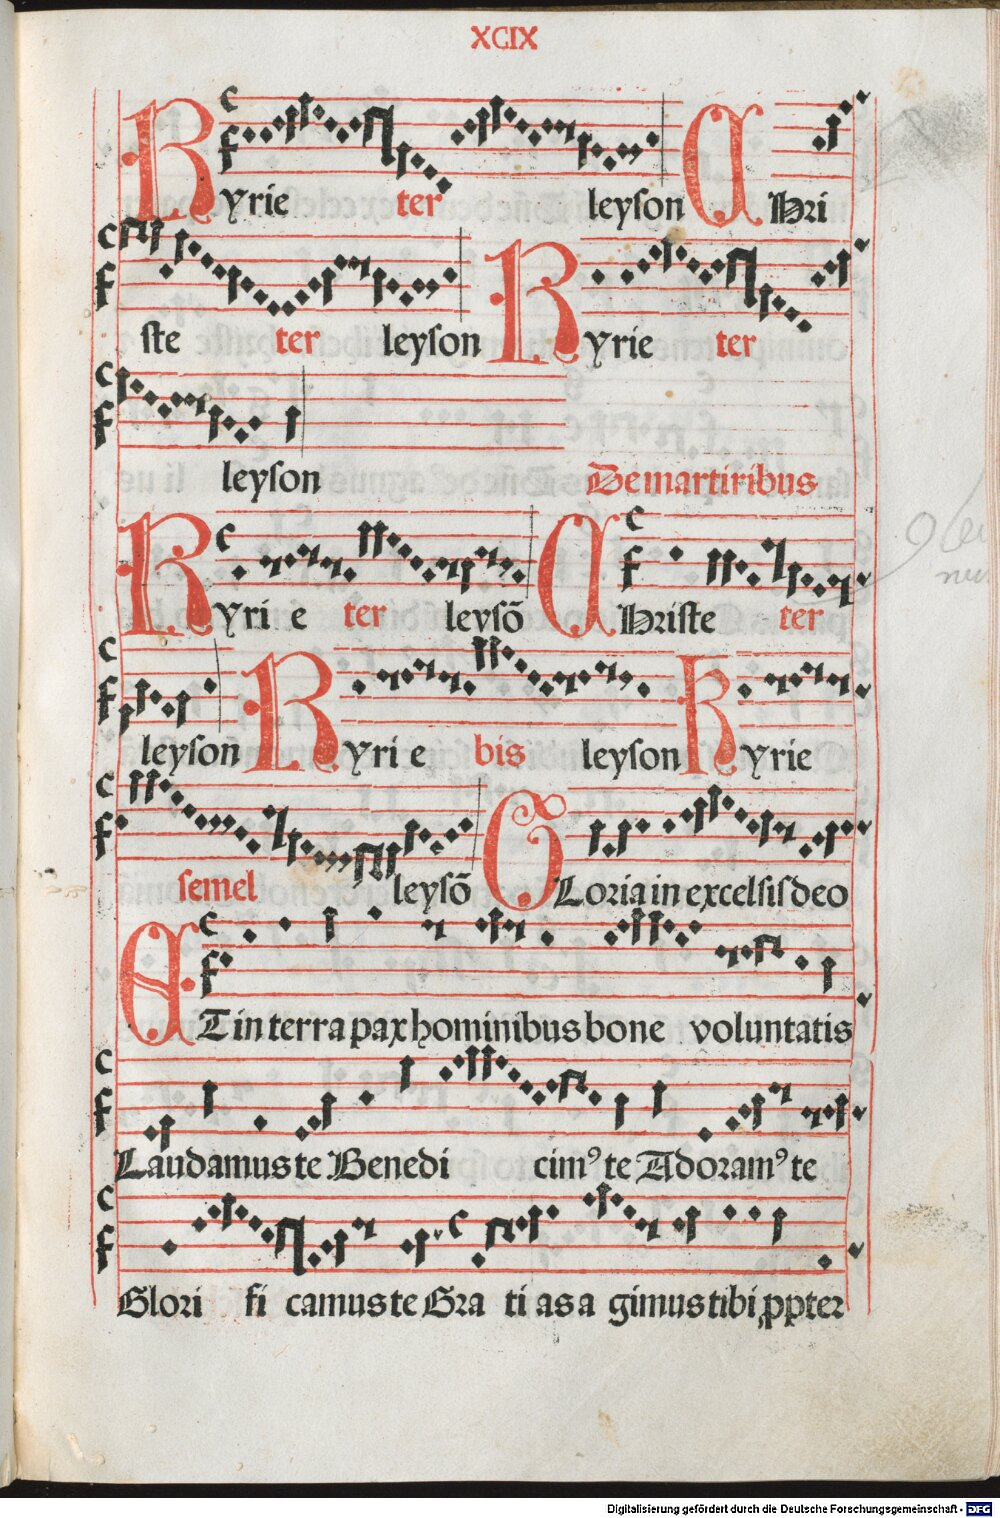 XCIX
Kyrie ter leyson Chri
ste ter leyson Kyrie ter
leyson De martiribus
Kyri e ter leysõ Christe ter
leyson Kyri e bis leyson Kyrie
semel leysõ Gloria in excelsis deo
Et in terra pax hominibus bone voluntatis
Laudamus te Benedi cimꝰ te Adoramꝰ te
Glori fi camus te Gra ti as a gimus tibi ꝓpter
Digitalisierung gefördert durch die Deutsche Forschungsgemeinschaft - DFG